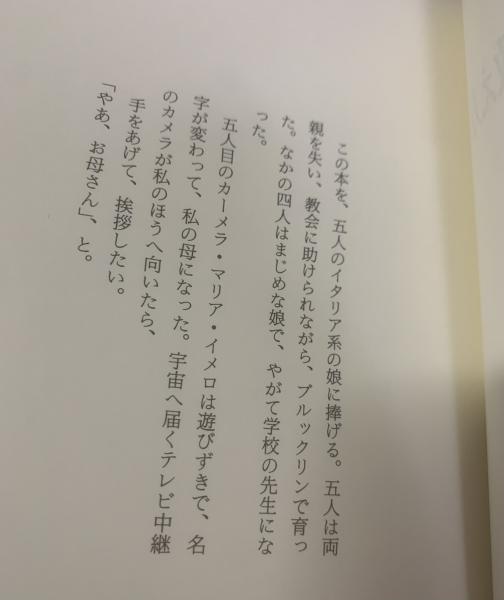 この本を、五人のイタリア系の娘に捧げる。五人は両
親を失い、教会に助けられながら、ブルックリンで育っ
た。なかの四人はまじめな娘で、やがて学校の先生にな
った。
五人目のカーメラ・マリア・イメロは遊びずきで、名
字が変わって、私の母になった。宇宙へ届くテレビ中継
のカメラが私のほうへ向いたら、
手をあげて、挨拶したい。
「やあ、お母さん」、と。